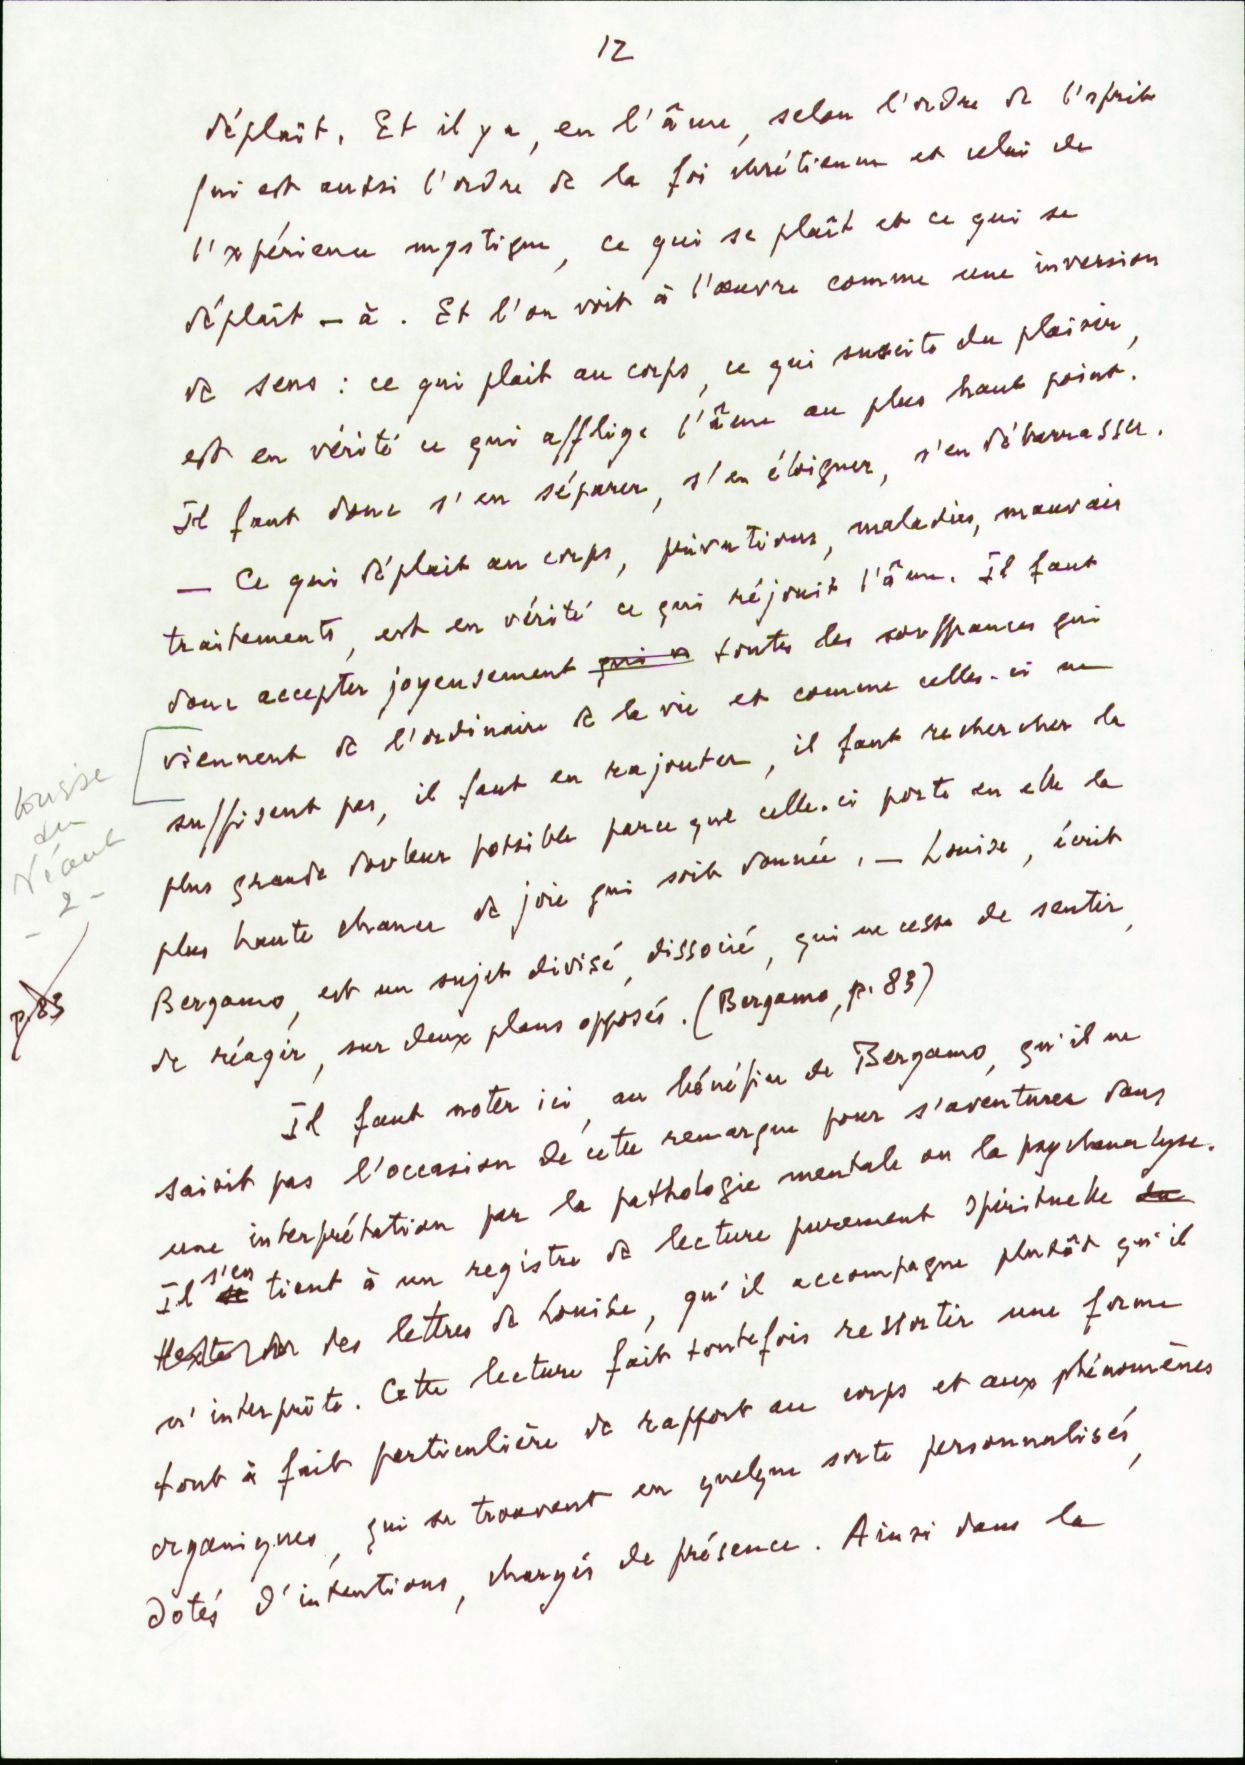 12
déplaît. Et il y a, en l'âme, selon l'ordre de l'esprit
qui est aussi l'ordre de la foi chrétienne et celui de
l'expérience mystique, ce qui se plaît et ce qui se
déplaît – à. Et l'on voit à l'œuvre comme une inversion
de sens : ce qui plait au corps, ce qui suscite du plaisir,
est en vérité ce qui afflige l'âme au plus haut point.
Il faut donc s'en séparer, s'en éloigner, s'en débarrasser.
— Ce qui déplait au corps, privations, maladies, mauvais
traitements, est en vérité ce qui réjouit l'âme. Il faut
donc accepter joyeusement toutes les souffrances qui
viennent de l'ordinaire de la vie et comme celles-ci ne
suffisent pas, il faut en rajouter, il faut rechercher la
plus grande douleur possible parce que celle-ci porte en elle la
plus haute chance de joie qui soit donnée. — Louise, écrit
Bergamo, est un sujet divisé, dissocié, qui ne cesse de sentir,
de réagir, sur deux plans opposés. (Bergamo, p. 83)
Louise
du
Néant
- 2 -
p. 83
Il faut noter ici, au bénéfice de Bergamo, qu'il ne
saisit pas l'occasion de cette remarque pour s'aventurer dans
une interprétation par la pathologie mentale ou la psychanalyse.
Il s'en tient à un registre de lecture purement spirituelle
des lettres de Louise, qu'il accompagne plutôt qu'il
n'interprète. Cette lecture fait toutefois ressortir une forme
tout à fait particulière de rapport au corps et aux phénomènes
organiques, qui se trouvent en quelque sorte personnalisés,
dotés d'intentions, chargés de présence. Ainsi dans la